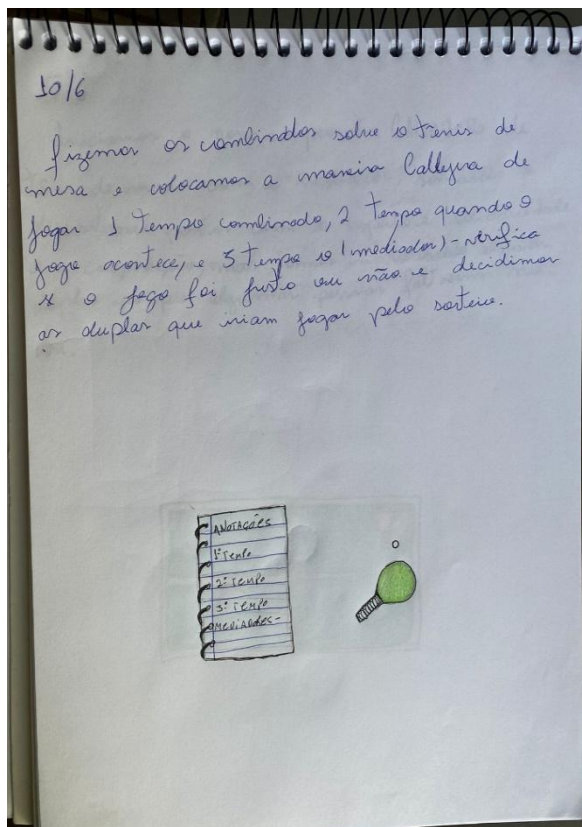 10/6
fizemos os combinados sobre o tenis de
mesa e colocamos a maneira Callejera de
jogar 1 tempo combinado, 2 tempo quando o
jogo acontece, e 3 tempo o (mediador) - verifica
se o jogo foi justo ou não e decidimos
as duplas que iriam jogar pelo sorteio.
ANOTAÇÕES
1º TEMPO
2º TEMPO
3º TEMPO
MEDIADORES-